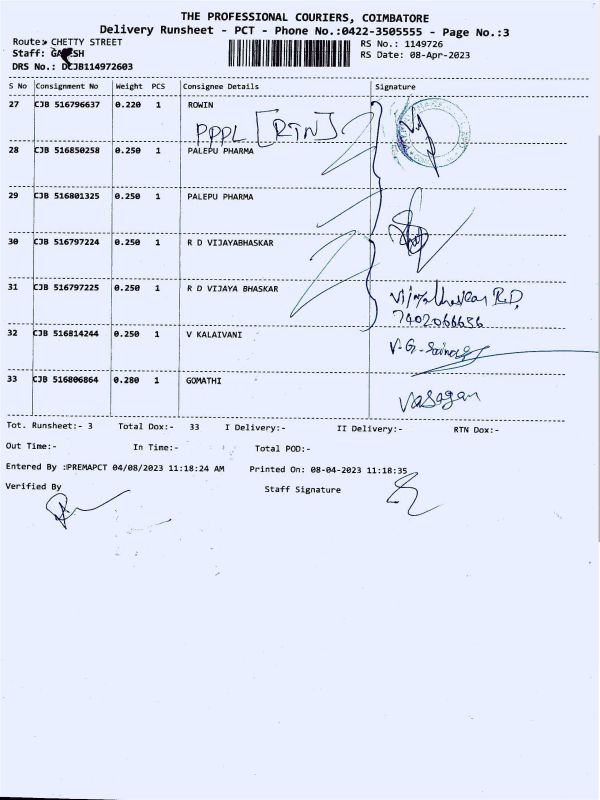 THE PROFESSIONAL COURIERS, COIMBATORE
Delivery Runsheet - PCT - Phone No.:0422-3505555 - Page No.:3
Route: CHETTY STREET
RS No.: 1149726
Staff: GANESH
RS Date: 08-Apr-2023
DRS No.: DCJB114972603
S No Consignment No Weight PCS Consignee Details Signature
27 CJB 516796637 0.220 1 ROWIN
PPPL [RTN]
28 CJB 516850258 0.250 1 PALEPU PHARMA
29 CJB 516801325 0.250 1 PALEPU PHARMA
30 CJB 516797224 0.250 1 R D VIJAYABHASKAR
31 CJB 516797225 0.250 1 R D VIJAYA BHASKAR
Vijayabhaskar R.D.
7402066656
32 CJB 516814244 0.250 1 V KALAIVANI
V.G.
33 CJB 516806864 0.280 1 GOMATHI
Vasagan
Tot. Runsheet:- 3 Total Dox:- 33 I Delivery:- II Delivery:- RTN Dox:-
Out Time:- In Time:- Total POD:-
Entered By :PREMAPCT 04/08/2023 11:18:24 AM Printed On: 08-04-2023 11:18:35
Verified By Staff Signature